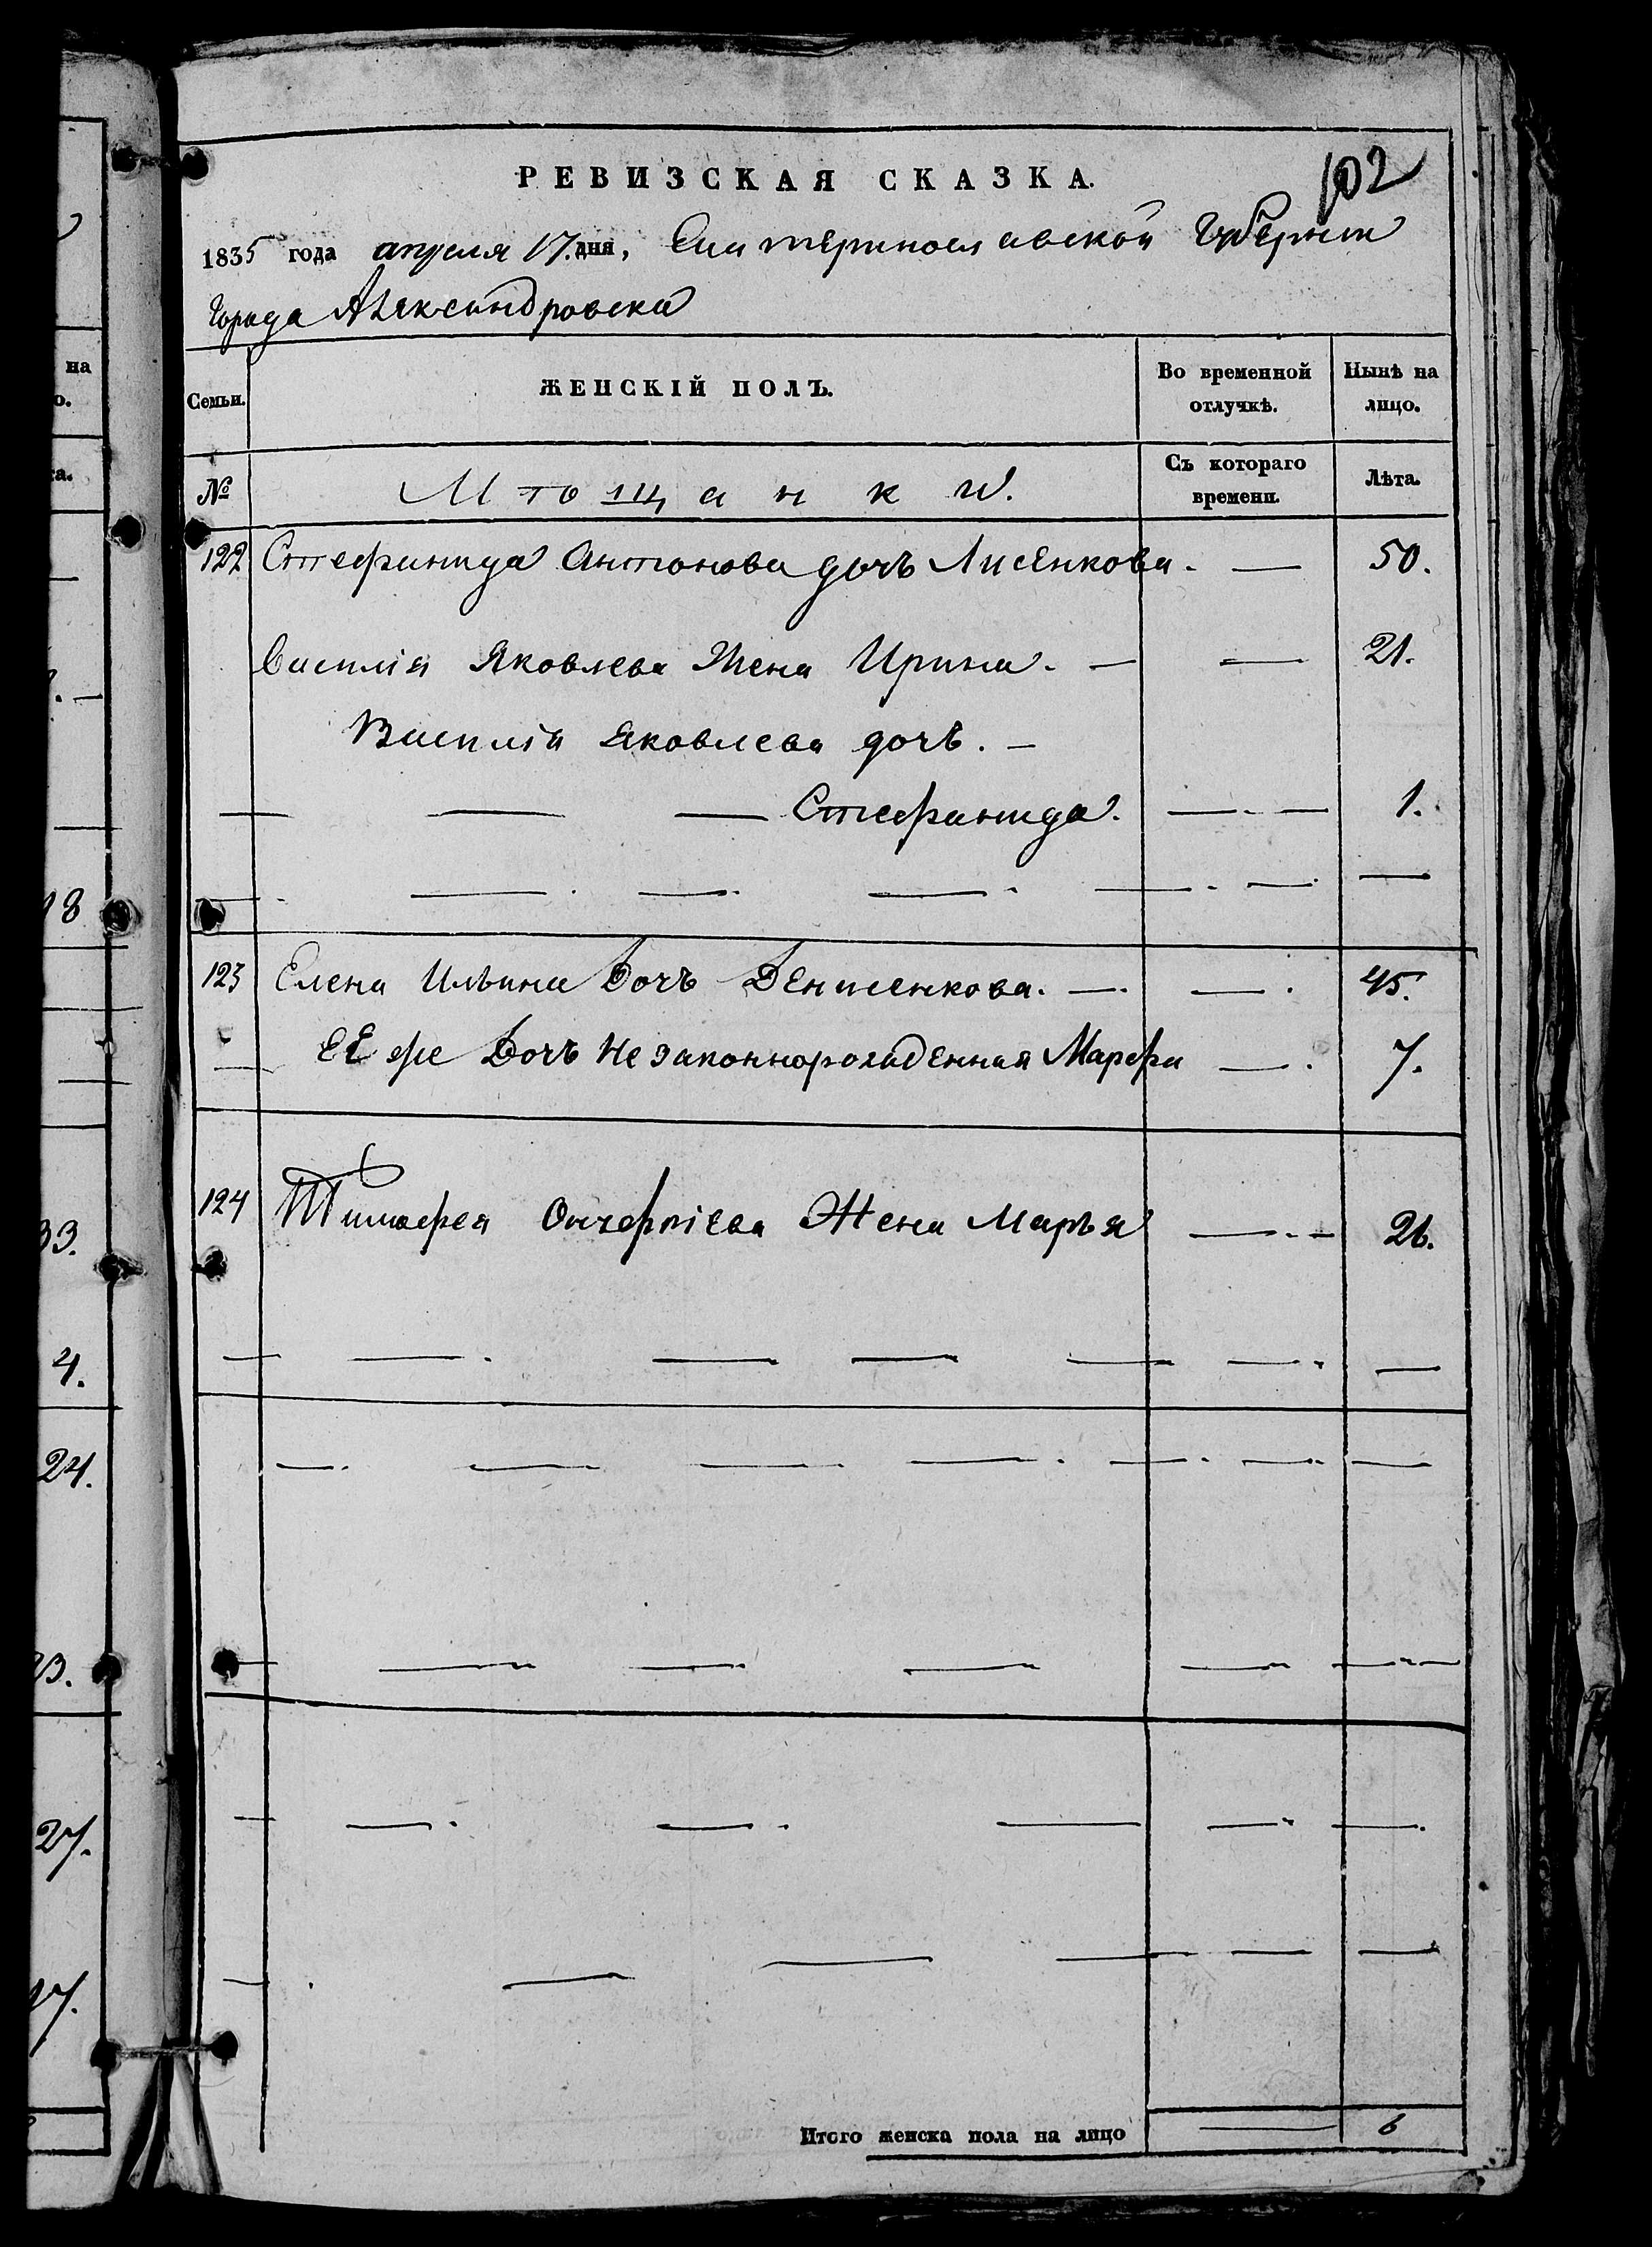 РЕВИЗСКАЯ СКАЗКА.
102
1835 года апреля 17. дня, Екатеринославской Губернии
Города Александровска
Семьи.
ЖЕНСКІЙ ПОЛЪ.
Во временной
отлучкѣ.
Нынѣ на
лицо.
№
Мѣщанки.
Съ котораго
времени.
Лѣта.
122 Стефанида Антонова дочь Лисенкова. — 50.
Василія Яковлева Жена Ирина. — — 21.
Василія Яковлева дочь. —
— — — Стефанида. — . — 1.
123 Елена Ильина Дочь Денисенкова. — . — . 45.
ЕЕ же Дочь Незаконнорожденная Марфа — . 7.
124 Тимофея Жена Марья — . — 26.
Итого женска пола на лицо — 6
на
о.
а.
18
33.
4.
24.
23.
27.
17.